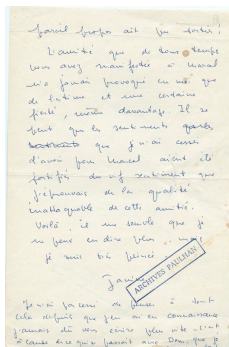 pareil propos ait pu sortir.
L'amitié que de tous temps
vous avez manifestée à Marcel
n'a jamais provoqué en moi que
de l'estime et une certaine
fierté, davantage. Il se
peut que les sentiments
que j'ai cessé
d'avoir pour Marcel aient été
fortifiés du vif sentiment que
j'éprouvais de la qualité
inattaquable de cette amitié.
Voilà, il me semble que je
ne peux en dire plus
je suis très peinée.
ARCHIVES PAULHAN
Je n'ai pas cessé de penser à tout
cela depuis que j'en ai eu connaissance
j'aurais dû vous écrire plus vite
à cause de ce qui se passait avec que je